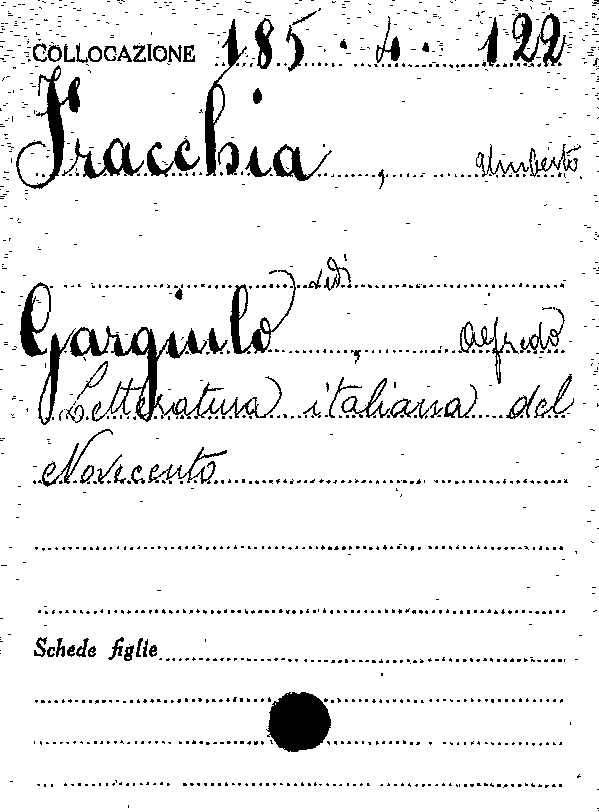 COLLOCAZIONE 185.4.122
Fracchia, Umberto
vedi
Gargiulo, Alfredo
Letteratura italiana del
Novecento
Schede figlie